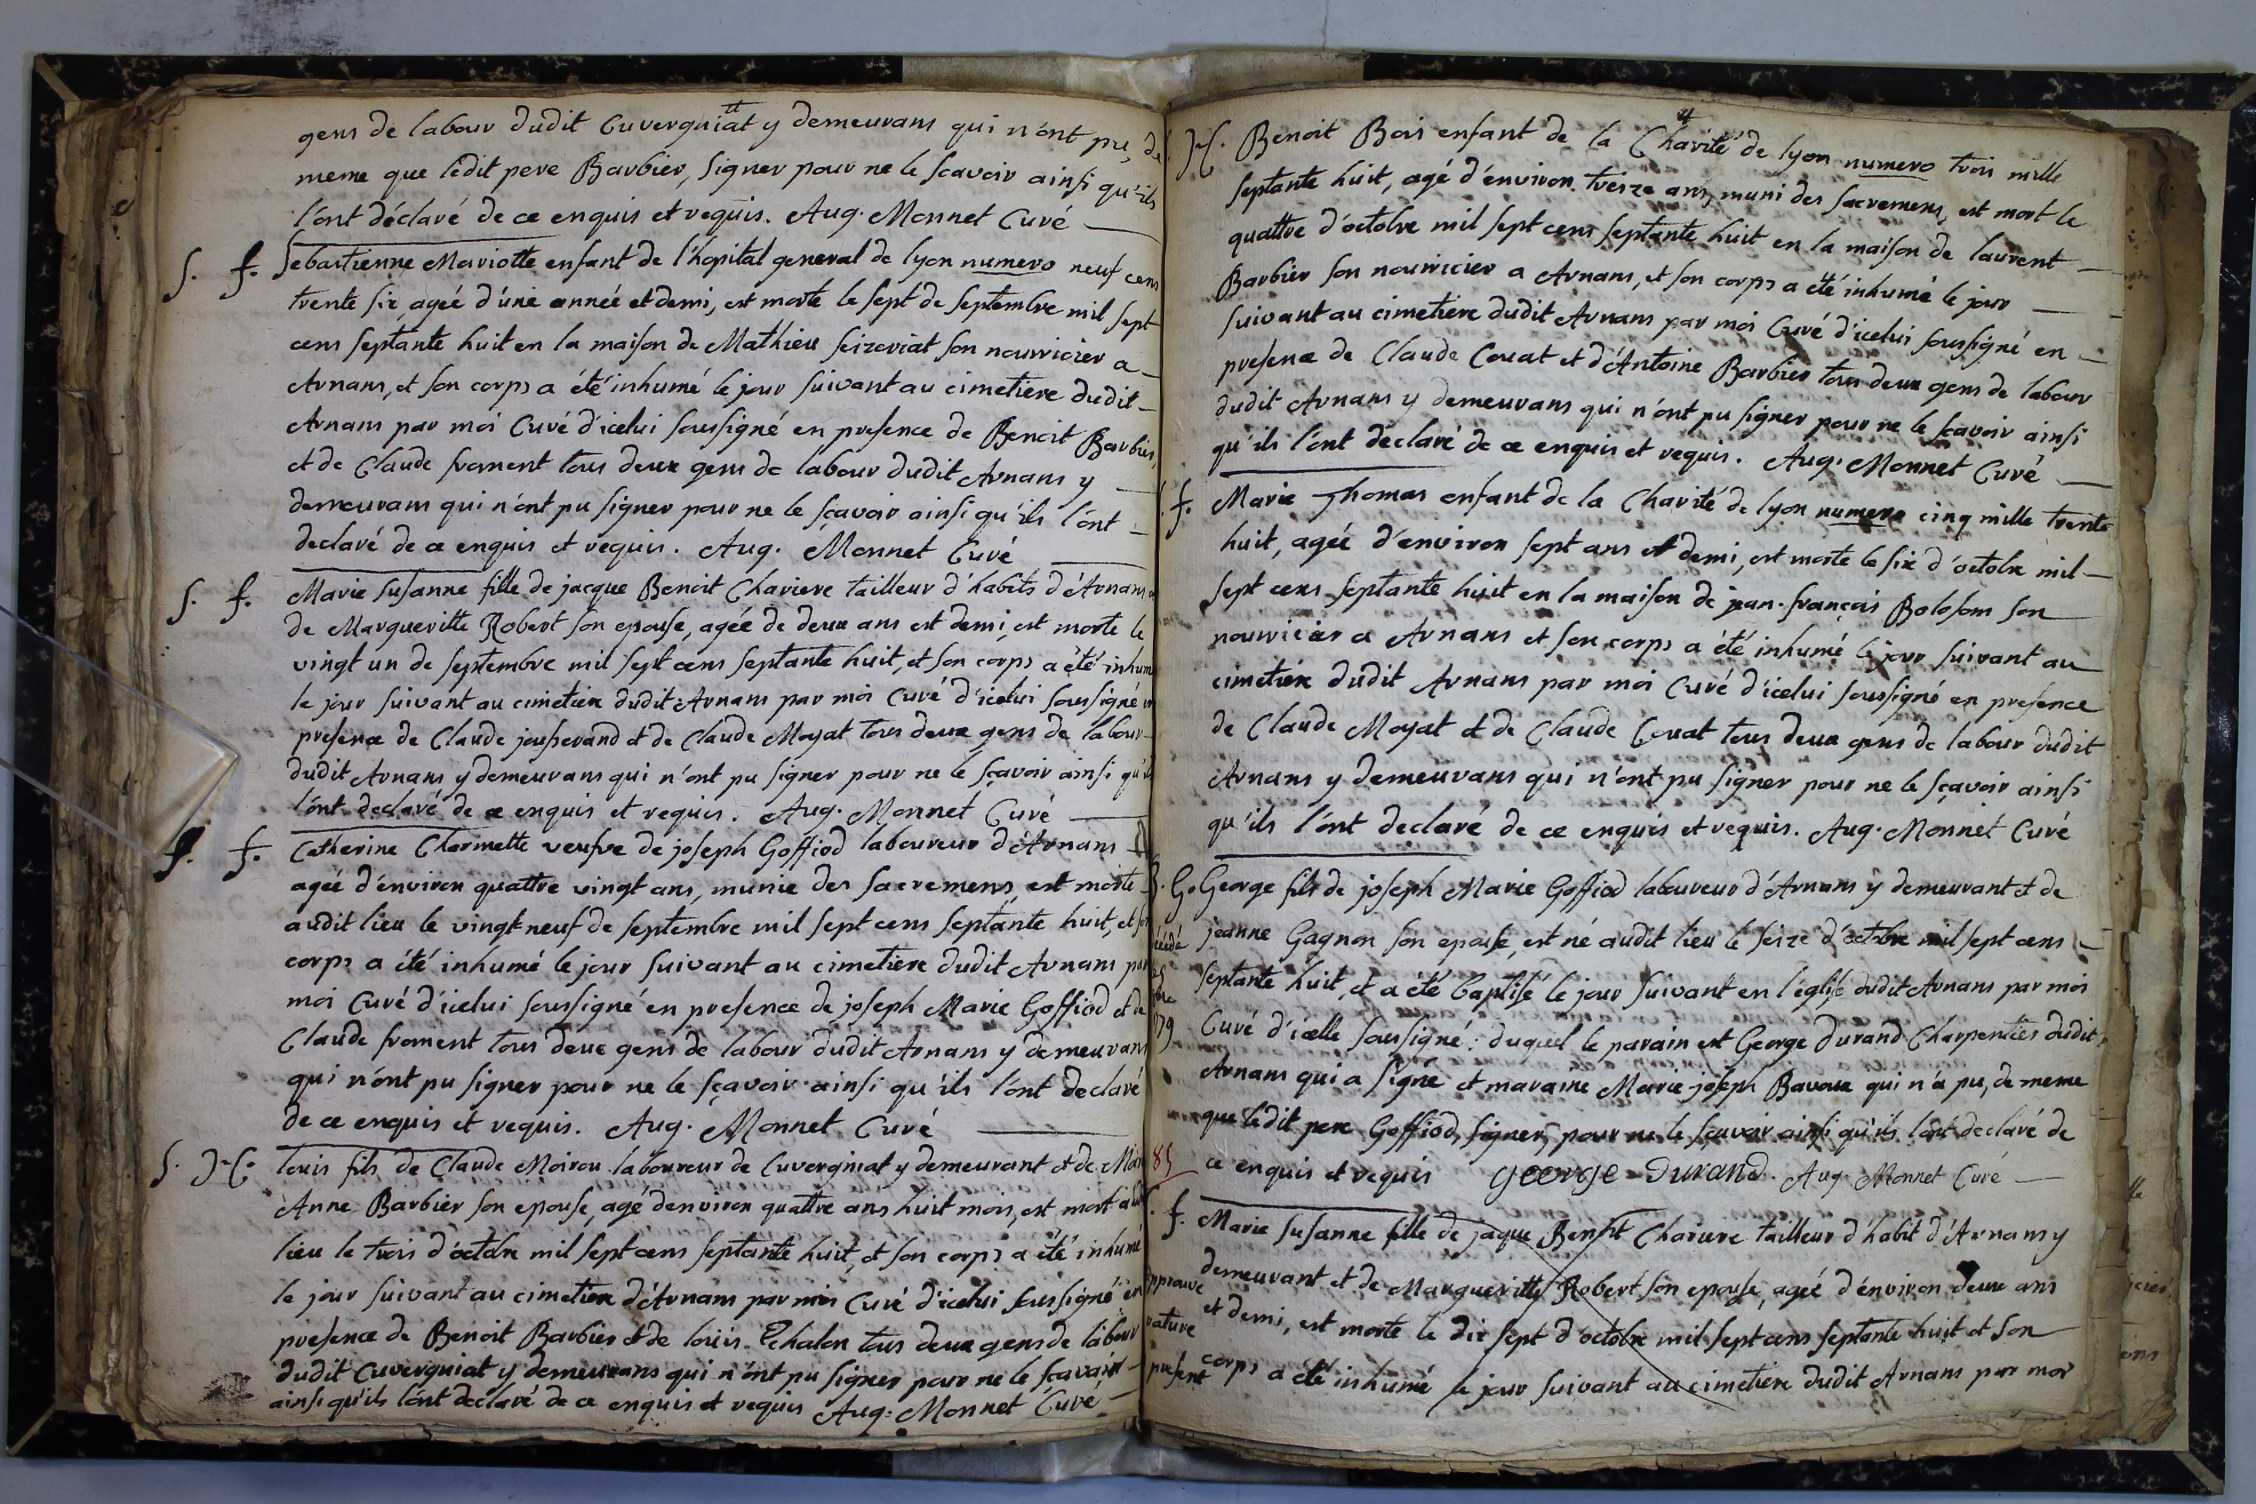 gens de labour dudit Cuvergniat y demeurans qui n'ont pu, de
meme que ledit pere Barbier, signer pour ne le sçavoir ainsi qu'ils
l'ont déclaré de ce enquis et requis. Aug. Monnet Curé
S. f. Sebastienne Mariotte enfant de l'hopital general de lyon numero neuf cens
trente six, ageé d'une anneé et demi, est morte le sept de septembre mil sept
cens septante huit en la maison de Mathieu seizeriat son nourricier a
Arnans, et son corps a été inhumé le jour suivant au cimetiere dudit
Arnans par moi Curé d'icelui soussigné en presence de Benoit Barbier,
et de Claude froment tous deux gens de labour dudit Arnans y
demeurans qui n'ont pu signer pour ne le sçavoir ainsi qu'ils l'ont
declaré de ce enquis et requis. Aug. Monnet Curé
S. f. Marie susanne fille de jacque Benoit Chariere tailleur d'habits d'Arnans
de Margueritte Robert son epouse, ageé de deux ans est demi, est morte le
vingt un de septembre mil sept cens septante huit, et son corps a été inhumé
le jour suivant au cimetiere dudit Arnans par moi Curé d'icelui soussigné en
presence de Claude jouserand et de Claude Moyat tous deux gens de labour
dudit Arnans y demeurans qui n'ont pu signer pour ne le sçavoir ainsi qu'ils
l'ont declaré de ce enquis et requis. Aug. Monnet Curé
S. f. Catherine Charmette veufve de joseph Goffiod laboureur d'Arnans
ageé d'environ quattre vingt ans, munie des sacremens, est morte
audit lieu le vingt-neuf de septembre mil sept cens septante huit, et son
corps a été inhumé le jour suivant au cimetiere dudit Arnans par
moi Curé d'icelui soussigné en presence de joseph Marie Goffiod et de
Claude froment tous deux gens de labour dudit Arnans y demeurans
qui n'ont pu signer pour ne le sçavoir ainsi qu'ils l'ont declaré
de ce enquis et requis. Aug. Monnet Curé
S. J-C. louis fils de Claude Moirou laboureur de Cuvergniat y demeurant et de Marie
Anne Barbier son epouse, agé denviron quattre ans huit mois, est mort audit
lieu le trois d'octobre mil sept cens septante huit, et son corps a été inhumé
le jour suivant au cimetiere d'Arnans par moi Curé d'icelui soussigné en
presence de Benoit Barbier et de louis Chalon tous deux gens de labour
dudit Cuvergniat y demeurans qui n'ont pu signer pour ne le scavoir
ainsi qu'ils l'ont declaré de ce enquis et requis Aug. Monnet Curé
J-C. Benoit Bois enfant de la Charité de lyon numero trois mille
septante huit, agé d'environ treize ans, muni des sacremens, est mort le
quattre d'octobre mil sept cens septante huit en la maison de laurent
Barbier son nourricier a Arnans, et son corps a été inhumé le jour
suivant au cimetiere dudit Arnans par moi Curé d'icelui soussigné en
presence de Claude Couat et d'Antoine Barbier tous deux gens de labour
dudit Arnans y demeurans qui n'ont pu signer pour ne le sçavoir ainsi
qu'ils l'ont declaré de ce enquis et requis. Aug. Monnet Curé
f. Marie Thomas enfant de la Charité de lyon numero cinq mille trente
huit, ageé d'environ sept ans et demi, est morte le six d'octobre mil
sept cens septante huit en la maison de jean-françois Bolosom son
nourricier a Arnans et son corps a été inhumé le jour suivant au
cimetiere dudit Arnans par moi Curé d'icelui soussigné en presence
de Claude Moyat et de Claude Couat tous deux gens de labour dudit
Arnans y demeurans qui n'ont pu signer pour ne le sçavoir ainsi
qu'ils l'ont declaré de ce enquis et requis. Aug. Monnet Curé
B. G. George fils de joseph Marie Goffiod laboureur d'Arnans y demeurant et de
jeanne Gagnon son epouse, est né audit lieu le seize d'octobre mil sept cens
septante huit, et a été baptisé le jour suivant en l'église dudit Arnans par moi
79
Curé d'icelle soussigné: duquel le parain est George Durand Charpentier dudit
Arnans qui a signé et maraine Marie joseph Bavoux qui n'a pu, de meme
que ledit pere Goffiod, signer, pour ne le sçavoir ainsi qu'ils l'ont declaré de
85
ce enquis et requis George Durand. Aug. Monnet Curé
f. Marie susanne fille de jaque Benoit Chariere tailleur d'habit d'Arnans y
demeurant et de Margueritte Robert son epouse, ageé d'environ deux ans
approuve
et demi, est morte le dix sept d'octobre mil sept cens septante huit et son
rature
corps a été inhumé le jour suivant au cimetiere dudit Arnans par moi
present